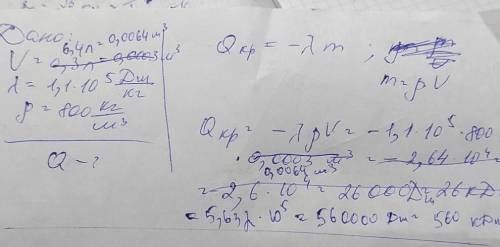 Дано:
6,4л=0,0064м³
V = 0,3л=0,0003 м³
λ = 1,1·10⁵ Дж/кг
ρ = 800 кг/м³
Q - ?
Qкр = -λ m ;
m = ρV
Qкр = -λρV = -1,1·10⁵·800
·0,0003 = -2,64·10⁴ =
0,0064м³
= -2,6·10⁴ = 26000Дж 26кД
= 5,632·10⁵ = 560000 Дж = 560 кДж